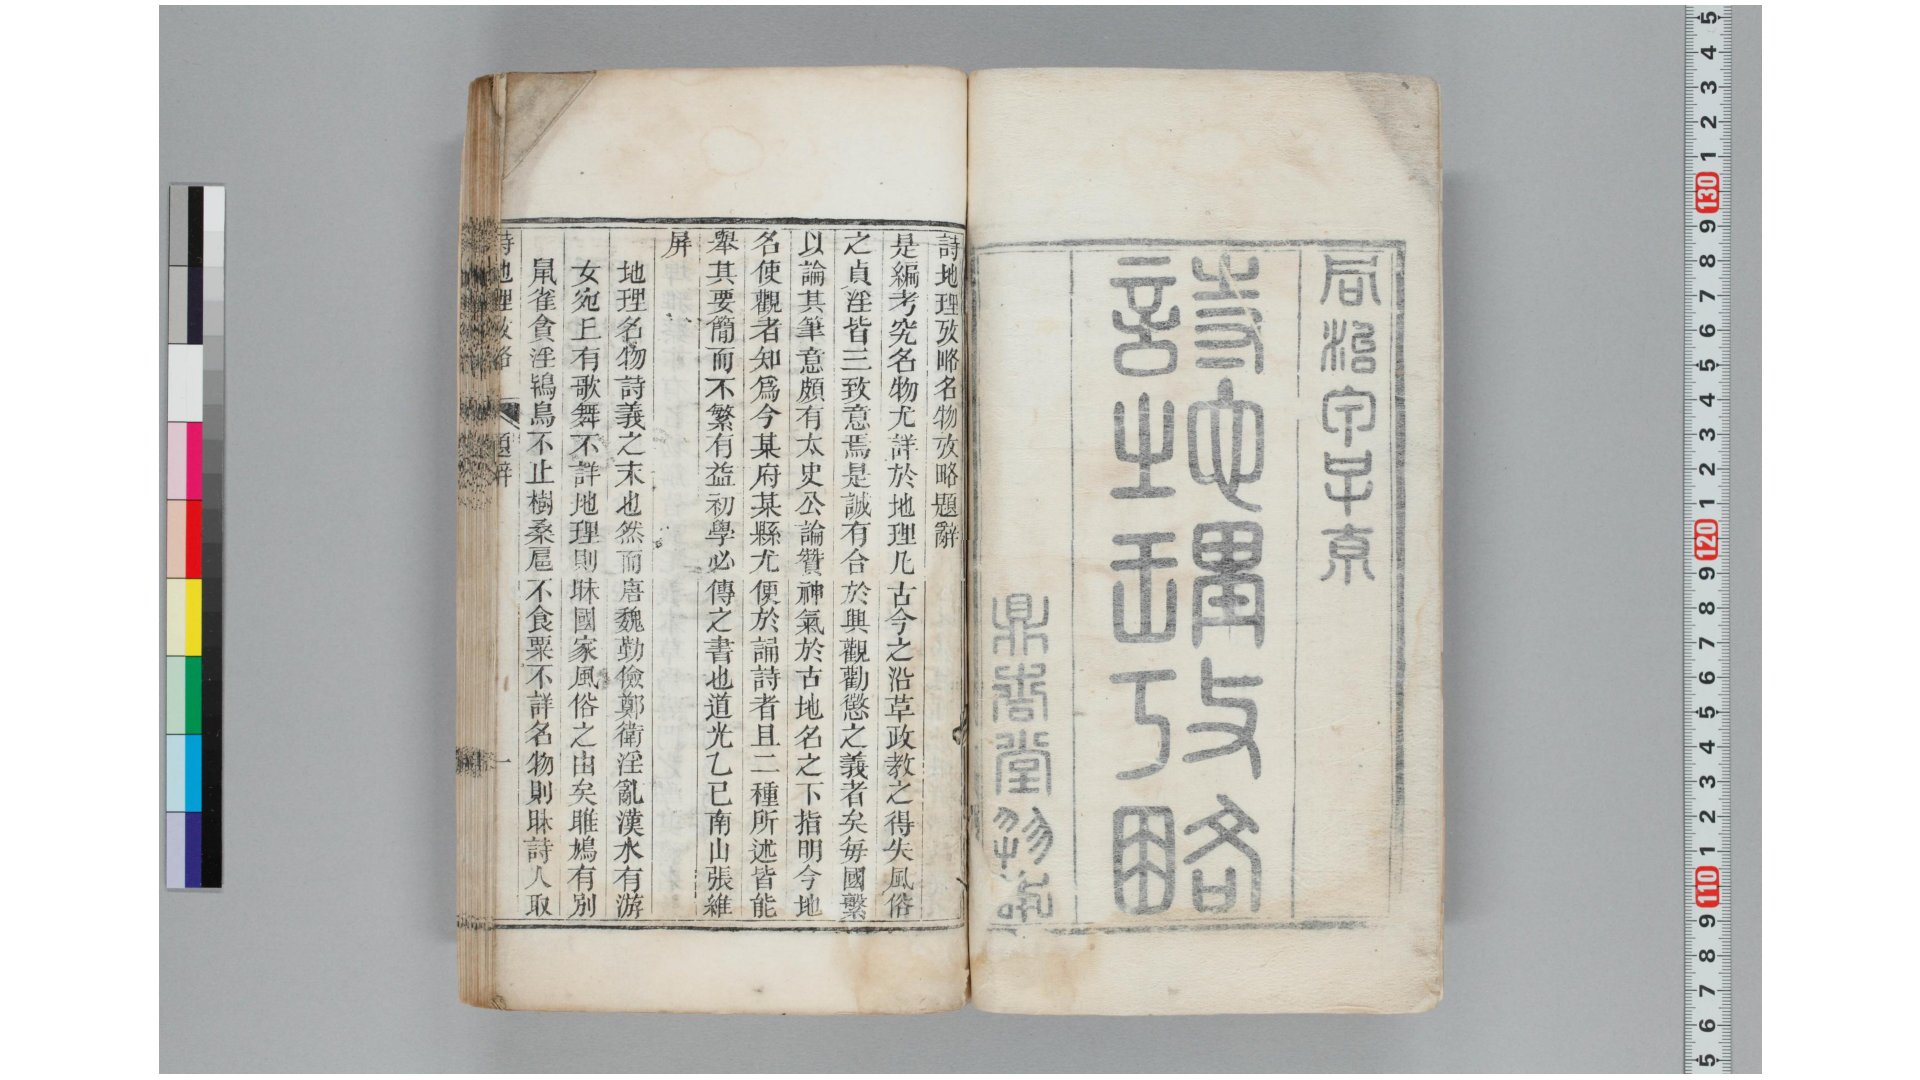 同治甲子
詩地理攷略
詩地理攷略名物攷略題辭
是編考究名物尤詳於地理凢古今之沿草政教之得失風俗
之貞淫皆三致意焉是誠有合於興觀勸懲之義者矣每國繫
以論其筆意頗有太史公論贊神氣於古地名之下指明今地
名使觀者知爲今某府某縣尤便於誦詩者且二種所述皆能
舉其要簡而不繁有益初學必傳之書也道光乙巳南山張維
屏
地理名物詩義之末也然而唐魏勤儉鄭衛淫亂漢水有游
女宛丘有歌舞不詳地理則昧國家風俗之由矣雎鳩有別
鼠雀貪淫鴇鳥不止樹桑扈不食粟不詳名物則昧詩人取
詩地理攷略 題辭 一